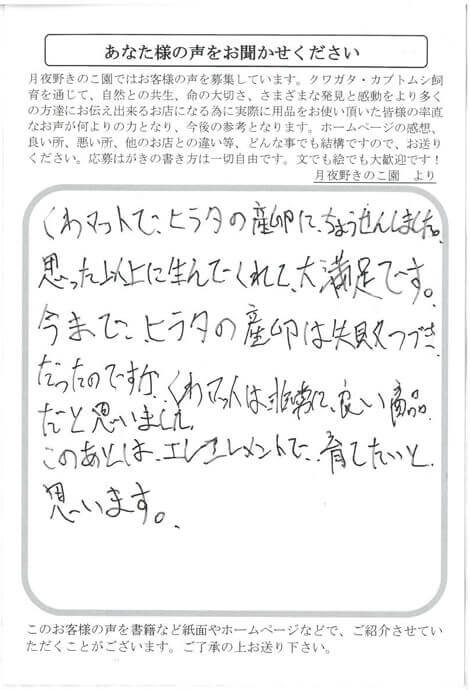 あなた様の声をお聞かせください
月夜野きのこ園ではお客様の声を募集しています。クワガタ・カブトムシ飼
育を通じて、自然との共生、命の大切さ、さまざまな発見と感動をより多く
の方達にお伝え出来るお店になる為に実際に用品をお使い頂いた皆様の率直
なお声が何よりの力となり、今後の参考となります。ホームページの感想、
良い所、悪い所、他のお店との違い等、どんな事でも結構ですので、お送り
ください。応募はがきの書き方は一切自由です。文でも絵でも大歓迎です！
月夜野きのこ園　より
くわマットで、ヒラタの産卵に、ちょうせんしました。
思った以上に生んでくれて、大満足です。
今まで、ヒラタの産卵は失敗つづき
だったのですが、くわマットは非常に良い商品
だと思いました。
このあとは、エレメントで、育てたいと
思います。
このお客様の声を書籍など紙面やホームページなどで、ご紹介させてい
ただくことがございます。ご了承の上お送り下さい。